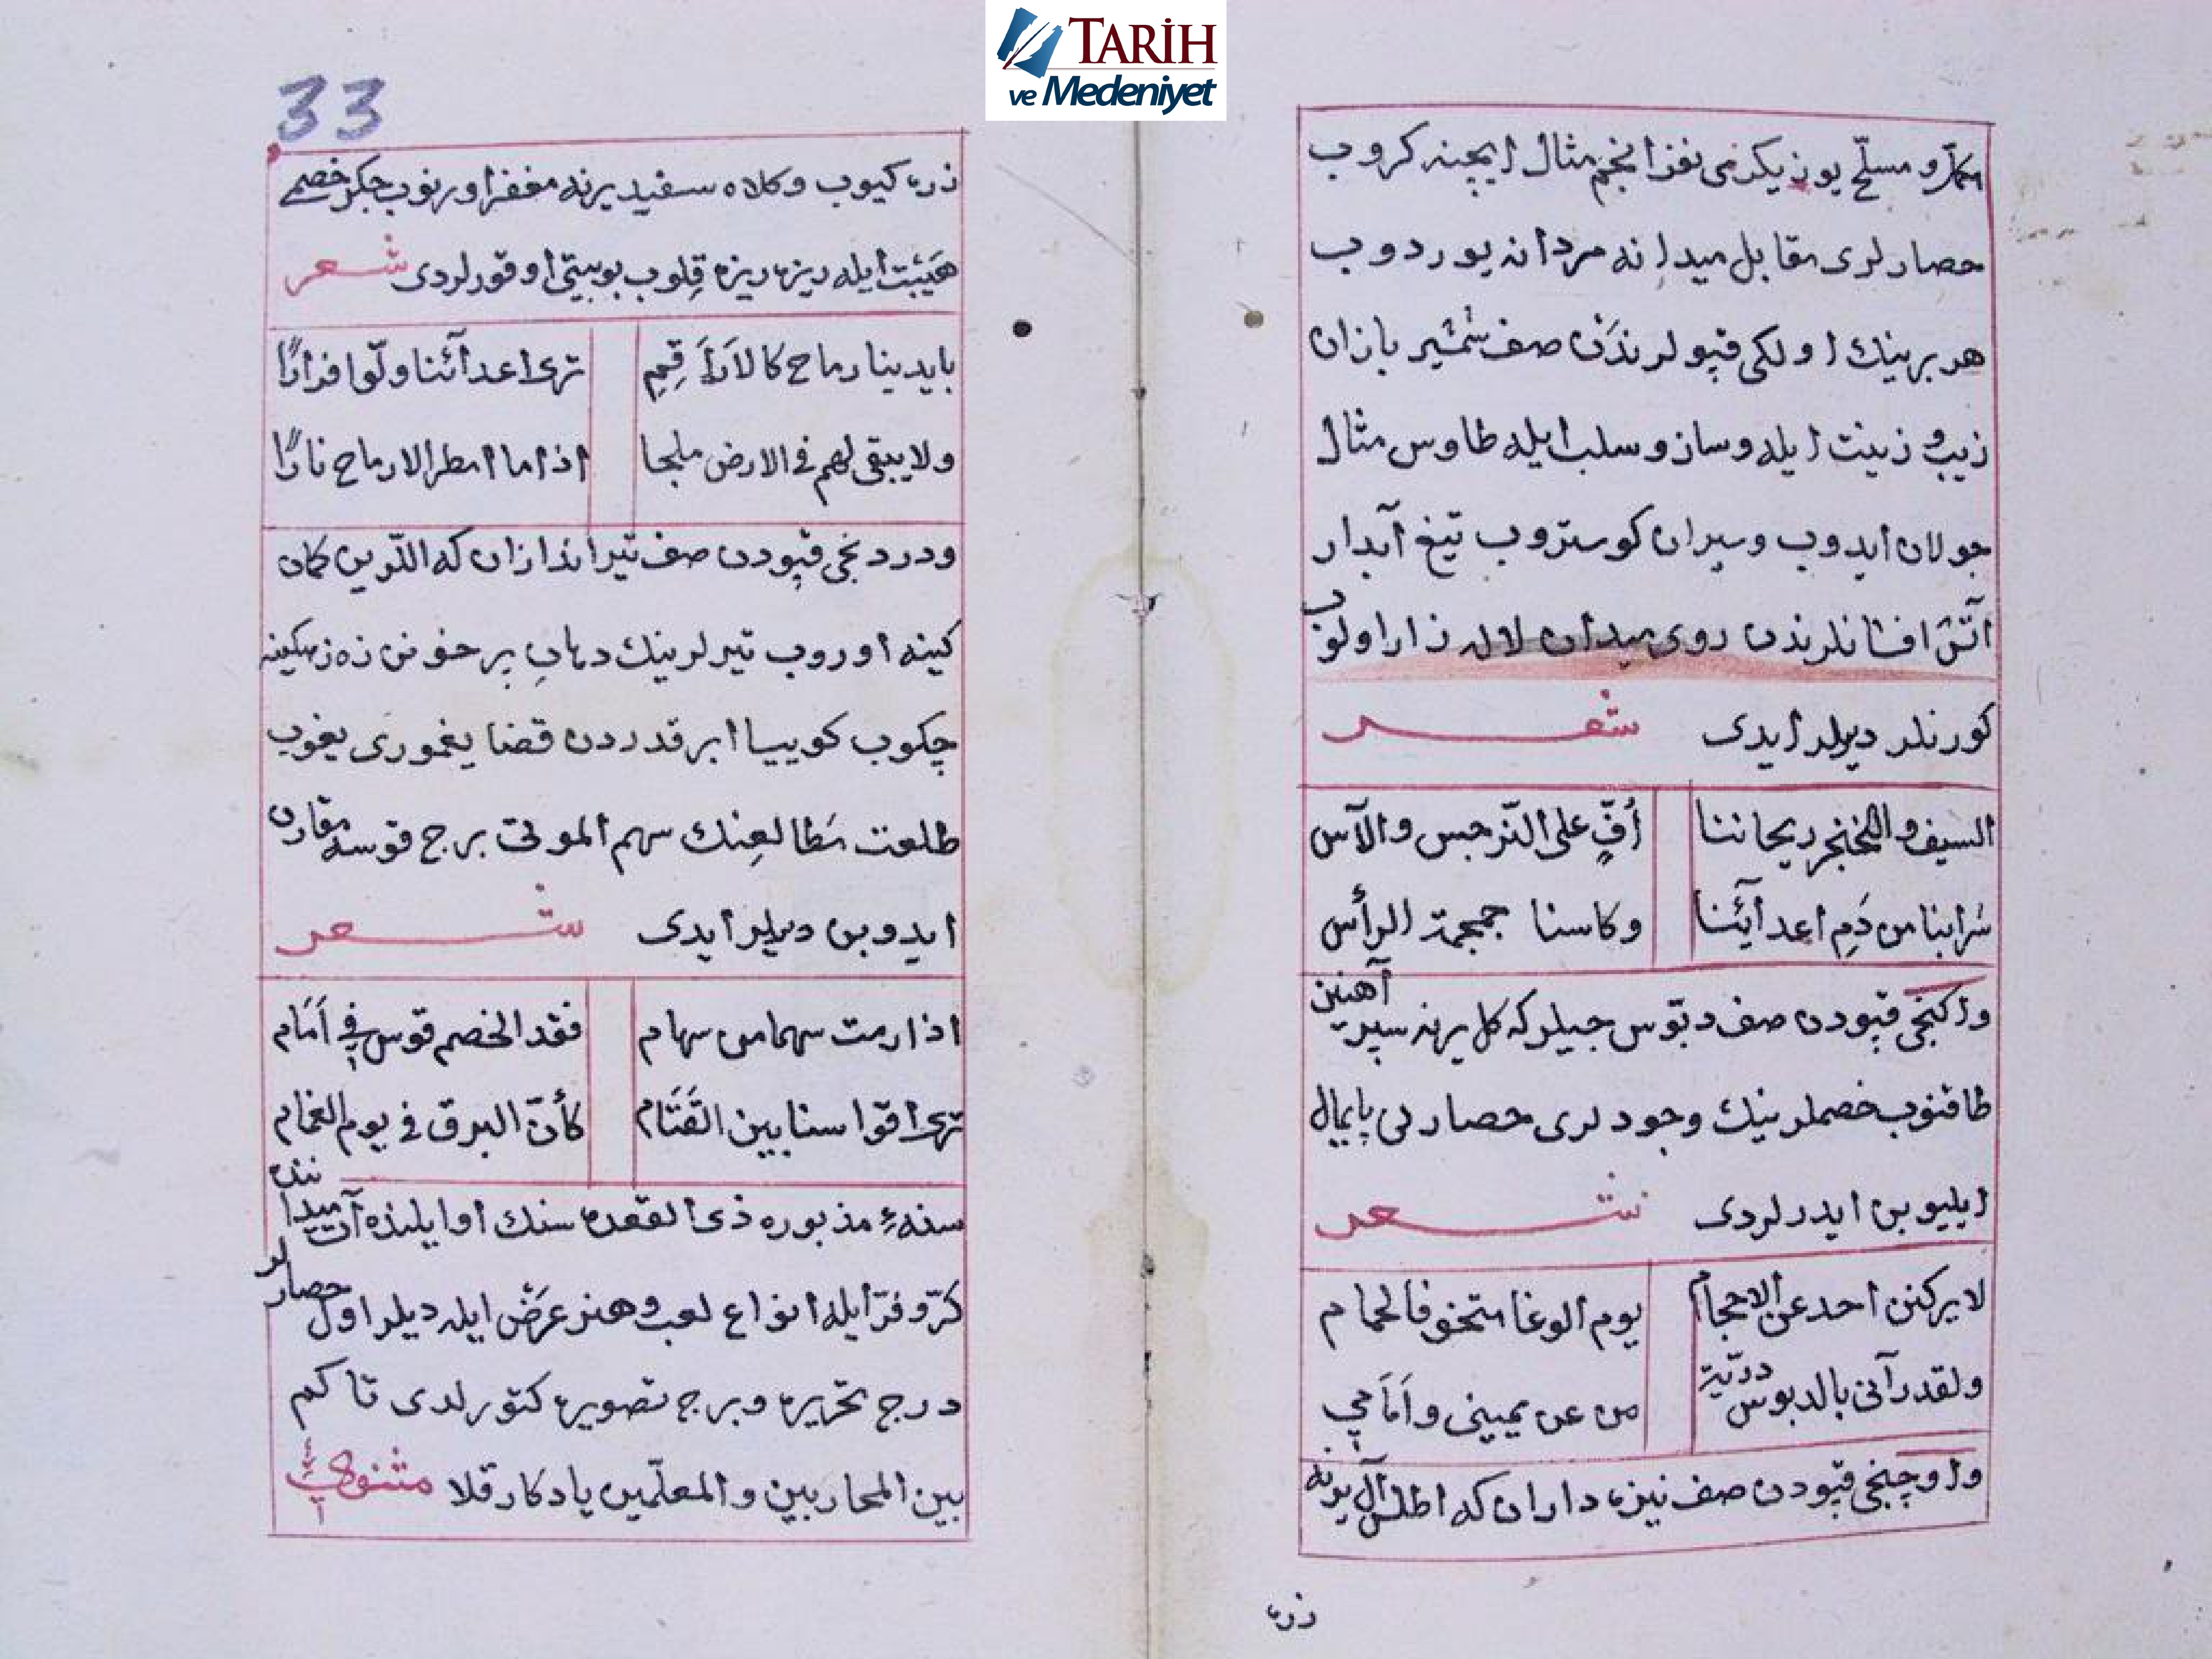 TARİH
ve Medeniyet
مكمّل و مسلّح يوز يكرمى نفر انجم مثال ايچينه كروب
حصارلرى مقابل ميدانه مردانه يوردوب
هر برينك اولكى قپولرندن صف شمشير بازان
زيب و زينت ايله و ساز و سلب ايله طاوس مثال
جولان ايدوب و سيران كوستروب تيغ آبدار
آتش افشانلرندن روى ميدان لاله زار اولوب
كورنلر ديرلر ايدى شعر
السيف والخنجر ريحاننا أفٍّ على النّرجس والآس
شرابنا من دَمِ اعدآئنا وكاسنا جمجمة الرأس
وايكنجى قپودن صف دبّوس جيلر كه كل يرنه سپر آهنين
طاقنوب خصملرينك وجودلرى حصارنى پايمال
ايليوبن ايدرلردى شعر
لا يركنن احد عن الاحجام يوم الوغا متخوفا لحمام
ولقد رآنى بالدبوس دريّة من عن يمينى وأمامى
واوچنجى قپودن صف نيزه داران كه اطلس آل يرنه
زره
33
زره كيوب و كلاه سفيد يرنه مغفر اورنوب جكر خصمى
هيئبت ايله ريزه ريزه قِلوب بو بيتى اوقورلردى شعر
بايدينا رماح كالاراقِمِ ترى اعدآئنا ولّوا فرارًا
ولا يبقى لهم فى الارض ملجا اذا ما امطر الارماح نارًا
ودردنجى قپودن صف تير اندازان كه اللّرين كمان
كينه اوروب تيرلرينك دهان پر خونن زه زهكينه
چكوب كوييا ابر قدردن قضا يغمورى يغوب
طلعت مَطالعِنك سهم الموتى برج قوسه مقارن
ايدوبن ديرلر ايدى شعر
اذا رمت سهما من سهام فقد الخصم قوس فى اَمَام
ترى اقواسنا بين القَتَام كأنّ البرق فى يوم الغمام
سنهٔ مذبوره ذى القعده سنك اوايلنده آت ميداننده
كرّ و فرّ ايله انواع لعب و هنر عرَض ايله ديلر اول حصارلر
درج تحريره و برج تصويره كتورلدى تا كم
بين المحاربين والمعلّمين يادكار قلا مثنوى